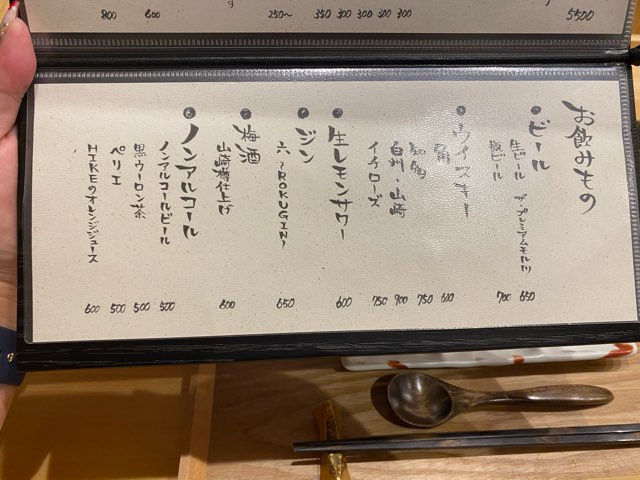 800
600
250〜
350
300
300
300
300
5500
お飲みもの
ビール
生ビール ザ・プレミアムモルツ 650
瓶ビール 700
ウイスキー
角 600
知多 750
白州・山崎 900
イチローズ 750
生レモンサワー 600
ジン
六〜ROKUGIN〜 650
梅酒
山崎樽仕上げ 800
ノンアルコール
ノンアルコールビール 500
黒ウーロン茶 500
ペリエ 500
HIKEのオレンジジュース 600